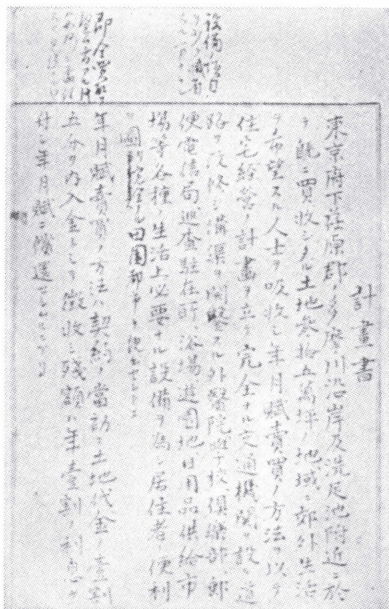 設備ノ項目
計畫書
東京府下荏原郡、多摩川沿岸及洗足池附近ニ於
テ既ニ買收シタル土地参拾五萬坪ノ地域ニ郊外生活
ヲ希望スル人士ヲ吸收シ年月賦賣買ノ方法ヲ以テ
住宅經營ノ計畫ヲ立テ完全ナル交通機關ヲ設ケ道
路ヲ改修シ溝渠ヲ開鑿スル外醫院學校俱樂部、郵
便電信局巡査駐在所、浴場遊園地日用品供給市
場等各種ノ生活上必要ナル設備ヲ為シ居住者ノ便利
ヲ圖リ完全ナル田園都市ヲ
即金買
年月賦賣買ノ方法ハ契約ノ當初ニ土地代金ノ壹割
五分ヲ内入金トシテ徴收シ残額ハ年壹割ノ利息ヲ
付シ年月賦ニ償還